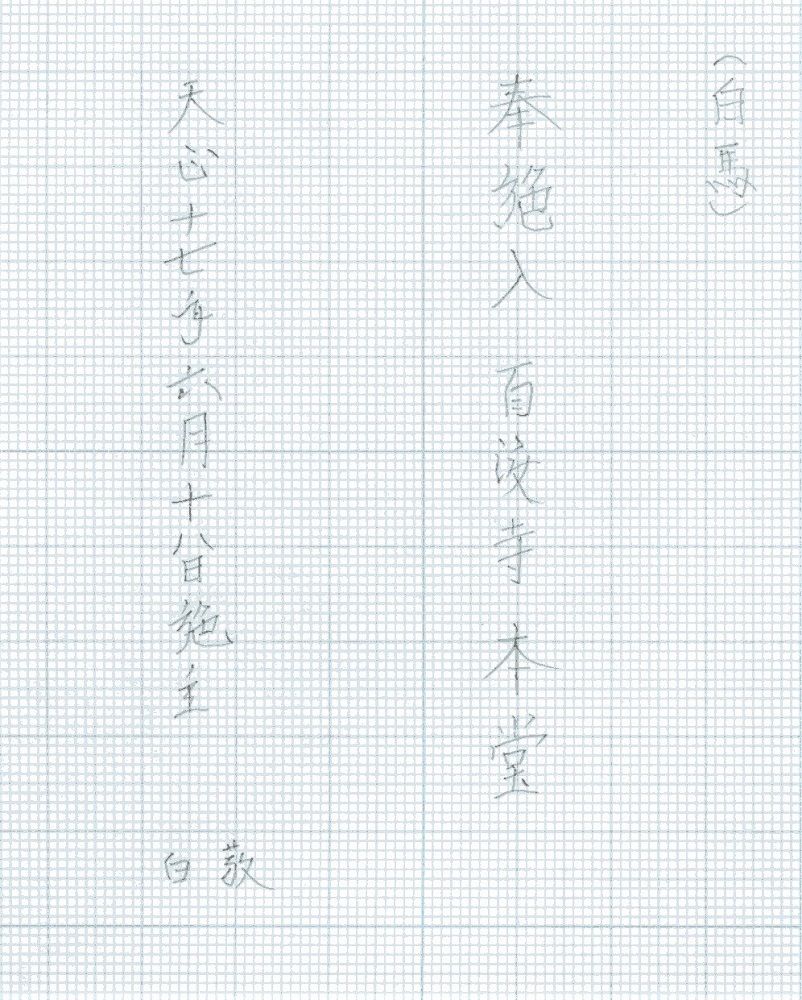 （白馬）
奉施入 百済寺 本堂
天正十七年六月十八日施主 敬白